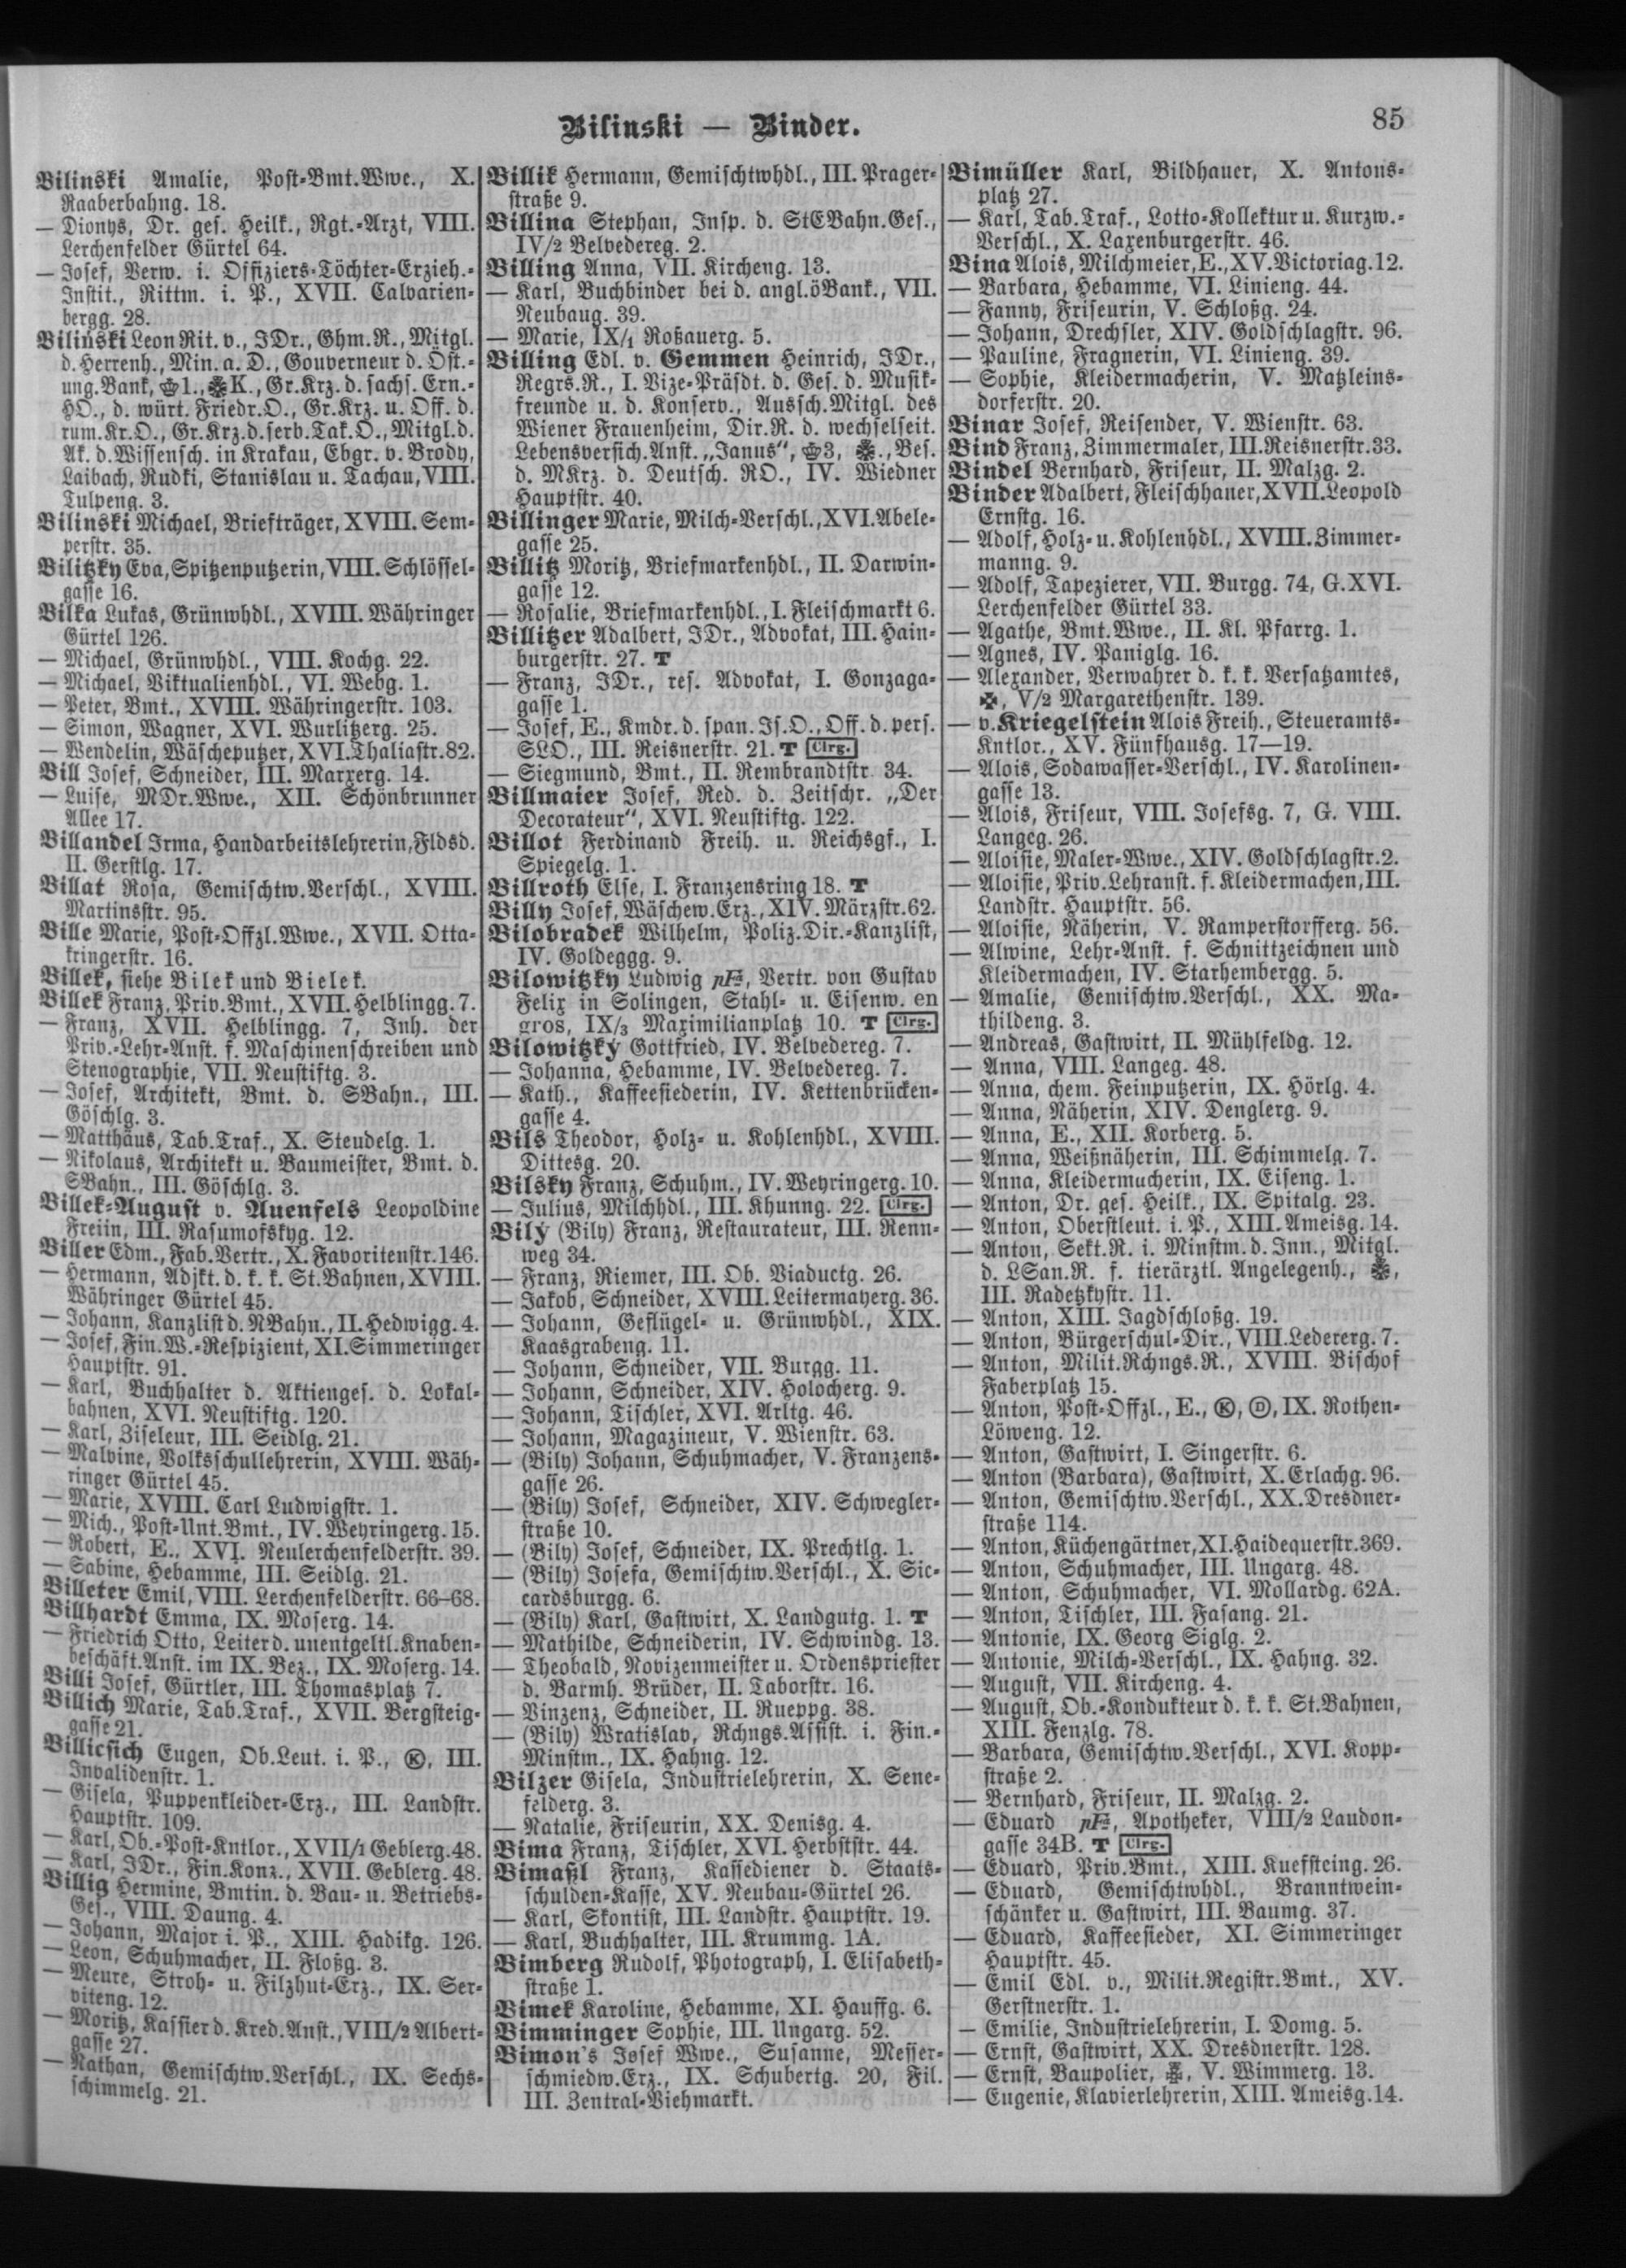 Bilinski — Binder.
85
Bilinski Amalie, Post-Bmt.Wwe., X.
Raaberbahng. 18.
— Dionys, Dr. ges. Heilk., Rgt.-Arzt, VIII.
Lerchenfelder Gürtel 64.
— Josef, Verw. i. Offiziers-Töchter-Erzieh.-
Instit., Rittm. i. P., XVII. Calvarien-
bergg. 28.
Biliński Leon Rit. v., JDr., Ghm.R., Mitgl.
d. Herrenh., Min. a. D., Gouverneur d. Öst.-
ung. Bank, 1., K., Gr.Krz. d. sachs. Ern.-
HO., d. würt. Friedr.O., Gr.Krz. u. Off. d.
rum.Kr.O., Gr.Krz.d.serb.Tak.O., Mitgl.d.
Ak. d. Wissensch. in Krakau, Ebgr. v. Brody,
Laibach, Rudki, Stanislau u. Tachau, VIII.
Tulpeng. 3.
Bilinski Michael, Briefträger, XVIII. Sem-
perstr. 35.
Bilitzky Eva, Spitzenputzerin, VIII. Schlössel-
gasse 16.
Bilka Lukas, Grünwhdl., XVIII. Währinger
Gürtel 126.
— Michael, Grünwhdl., VIII. Kochg. 22.
— Michael, Viktualienhdl., VI. Webg. 1.
— Peter, Bmt., XVIII. Währingerstr. 103.
— Simon, Wagner, XVI. Wurlitzerg. 25.
— Wendelin, Wäscheputzer, XVI.Thaliastr.82.
Bill Josef, Schneider, III. Marxerg. 14.
— Luise, MDr.Wwe., XII. Schönbrunner
Allee 17.
Billandel Irma, Handarbeitslehrerin, Fldsd.
II. Gerstlg. 17.
Billat Rosa, Gemischtw.Verschl., XVIII.
Martinsstr. 95.
Bille Marie, Post-Offzl.Wwe., XVII. Otta-
kringerstr. 16.
Billek, siehe Bilek und Bielek.
Billek Franz, Priv.Bmt., XVII. Helblingg. 7.
— Franz, XVII. Helblingg. 7, Inh. der
Priv.-Lehr-Anst. f. Maschinenschreiben und
Stenographie, VII. Neustiftg. 3.
— Josef, Architekt, Bmt. d. SBahn., III.
Göschlg. 3.
— Matthäus, Tab.Traf., X. Steudelg. 1.
— Nikolaus, Architekt u. Baumeister, Bmt. d.
SBahn., III. Göschlg. 3.
Billek-August v. Auenfels Leopoldine
Freiin, III. Rasumofskyg. 12.
Biller Edm., Fab.Vertr., X. Favoritenstr. 146.
— Hermann, Adjkt. d. k. k. St.Bahnen, XVIII.
Währinger Gürtel 45.
— Johann, Kanzlist d. NBahn., II. Hedwigg. 4.
— Josef, Fin.W.-Respizient, XI. Simmeringer
Hauptstr. 91.
— Karl, Buchhalter d. Aktienges. d. Lokal-
bahnen, XVI. Neustiftg. 120.
— Karl, Ziseleur, III. Seidlg. 21.
— Malvine, Volksschullehrerin, XVIII. Wäh-
ringer Gürtel 45.
— Marie, XVIII. Carl Ludwigstr. 1.
— Mich., Post-Unt.Bmt., IV. Weyringerg. 15.
— Robert, E., XVI. Neulerchenfelderstr. 39.
— Sabine, Hebamme, III. Seidlg. 21.
Billeter Emil, VIII. Lerchenfelderstr. 66–68.
Billhardt Emma, IX. Moserg. 14.
— Friedrich Otto, Leiter d. unentgeltl. Knaben-
beschäft.Anst. im IX. Bez., IX. Moserg. 14.
Billi Josef, Gürtler, III. Thomasplatz 7.
Billich Marie, Tab.Traf., XVII. Bergsteig-
gasse 21.
Billicsich Eugen, Ob.Leut. i. P., Ⓚ, III.
Invalidenstr. 1.
— Gisela, Puppenkleider-Erz., III. Landstr.
Hauptstr. 109.
— Karl, Ob.-Post-Kntlor., XVII/1 Geblerg. 48.
— Karl, JDr., Fin.Konz., XVII. Geblerg. 48.
Billig Hermine, Bmtin. d. Bau- u. Betriebs-
Ges., VIII. Daung. 4.
— Johann, Major i. P., XIII. Hadikg. 126.
— Leon, Schuhmacher, II. Floßg. 3.
— Meure, Stroh- u. Filzhut-Erz., IX. Ser-
viteng. 12.
— Moritz, Kassier d. Kred.Anst., VIII/2 Albert-
gasse 27.
— Nathan, Gemischtw.Verschl., IX. Sechs-
schimmelg. 21.
Billik Hermann, Gemischtwhdl., III. Prager-
straße 9.
Billina Stephan, Insp. d. StEBahn.Ges.,
IV/2 Belvedereg. 2.
Billing Anna, VII. Kircheng. 13.
— Karl, Buchbinder bei d. angl.öBank., VII.
Neubaug. 39.
— Marie, IX/1 Roßauerg. 5.
Billing Edl. v. Gemmen Heinrich, JDr.,
Regrs.R., I. Vize-Präsdt. d. Ges. d. Musik-
freunde u. d. Konserv., Aussch.Mitgl. des
Wiener Frauenheim, Dir.R. d. wechselseit.
Lebensversich.Anst. „Janus“, 3, ., Bes.
d. MKrz. d. Deutsch. RO., IV. Wiedner
Hauptstr. 40.
Billinger Marie, Milch-Verschl., XVI. Abele-
gasse 25.
Billitz Moritz, Briefmarkenhdl., II. Darwin-
gasse 12.
— Rosalie, Briefmarkenhdl., I. Fleischmarkt 6.
Billitzer Adalbert, JDr., Advokat, III. Hain-
burgerstr. 27. T
— Franz, JDr., res. Advokat, I. Gonzaga-
gasse 1.
— Josef, E., Kmdr. d. span. Is.O., Off. d. pers.
SLO., III. Reisnerstr. 21. T Clrg.
— Siegmund, Bmt., II. Rembrandtstr. 34.
Billmaier Josef, Red. d. Zeitschr. „Der
Decorateur“, XVI. Neustiftg. 122.
Billot Ferdinand Freih. u. Reichsgf., I.
Spiegelg. 1.
Billroth Else, I. Franzensring 18. T
Billy Josef, Wäschew.Erz., XIV. Märzstr. 62.
Bilobradek Wilhelm, Poliz.Dir.-Kanzlist,
IV. Goldeggg. 9.
Bilowitzky Ludwig pFa, Vertr. von Gustav
Felix in Solingen, Stahl- u. Eisenw. en
gros, IX/3 Maximilianplatz 10. T Clrg.
Bilowitzký Gottfried, IV. Belvedereg. 7.
— Johanna, Hebamme, IV. Belvedereg. 7.
— Kath., Kaffeesiederin, IV. Kettenbrücken-
gasse 4.
Bils Theodor, Holz- u. Kohlenhdl., XVIII.
Dittesg. 20.
Bilsky Franz, Schuhm., IV. Weyringerg. 10.
— Julius, Milchhdl., III. Khunng. 22. Clrg.
Bilý (Bily) Franz, Restaurateur, III. Renn-
weg 34.
— Franz, Riemer, III. Ob. Viaductg. 26.
— Jakob, Schneider, XVIII. Leitermayerg. 36.
— Johann, Geflügel- u. Grünwhdl., XIX.
Kaasgrabeng. 11.
— Johann, Schneider, VII. Burgg. 11.
— Johann, Schneider, XIV. Holocherg. 9.
— Johann, Tischler, XVI. Arltg. 46.
— Johann, Magazineur, V. Wienstr. 63.
— (Bily) Johann, Schuhmacher, V. Franzens-
gasse 26.
— (Bily) Josef, Schneider, XIV. Schwegler-
straße 10.
— (Bily) Josef, Schneider, IX. Prechtlg. 1.
— (Bily) Josefa, Gemischtw.Verschl., X. Sic-
cardsburgg. 6.
— (Bily) Karl, Gastwirt, X. Landgutg. 1. T
— Mathilde, Schneiderin, IV. Schwindg. 13.
— Theobald, Novizenmeister u. Ordenspriester
d. Barmh. Brüder, II. Taborstr. 16.
— Vinzenz, Schneider, II. Rueppg. 38.
— (Bily) Wratislav, Rchngs.Assist. i. Fin.-
Minstm., IX. Hahng. 12.
Bilzer Gisela, Industrielehrerin, X. Sene-
felderg. 3.
— Natalie, Friseurin, XX. Denisg. 4.
Bima Franz, Tischler, XVI. Herbststr. 44.
Bimaßl Franz, Kassediener d. Staats-
schulden-Kasse, XV. Neubau-Gürtel 26.
— Karl, Skontist, III. Landstr. Hauptstr. 19.
— Karl, Buchhalter, III. Krummg. 1A.
Bimberg Rudolf, Photograph, I. Elisabeth-
straße 1.
Bimek Karoline, Hebamme, XI. Hauffg. 6.
Bimminger Sophie, III. Ungarg. 52.
Bimon's Josef Wwe., Susanne, Messer-
schmiedw.Erz., IX. Schubertg. 20, Fil.
III. Zentral-Viehmarkt.
Bimüller Karl, Bildhauer, X. Antons-
platz 27.
— Karl, Tab.Traf., Lotto-Kollektur u. Kurzw.-
Verschl., X. Laxenburgerstr. 46.
Bina Alois, Milchmeier, E., XV. Victoriag. 12.
— Barbara, Hebamme, VI. Linieng. 44.
— Fanny, Friseurin, V. Schloßg. 24.
— Johann, Drechsler, XIV. Goldschlagstr. 96.
— Pauline, Fragnerin, VI. Linieng. 39.
— Sophie, Kleidermacherin, V. Matzleins-
dorferstr. 20.
Binar Josef, Reisender, V. Wienstr. 63.
Bind Franz, Zimmermaler, III. Reisnerstr. 33.
Bindel Bernhard, Friseur, II. Malzg. 2.
Binder Adalbert, Fleischhauer, XVII. Leopold
Ernstg. 16.
— Adolf, Holz- u. Kohlenhdl., XVIII. Zimmer-
manng. 9.
— Adolf, Tapezierer, VII. Burgg. 74, G. XVI.
Lerchenfelder Gürtel 33.
— Agathe, Bmt.Wwe., II. Kl. Pfarrg. 1.
— Agnes, IV. Paniglg. 16.
— Alexander, Verwahrer d. k. k. Versatzamtes,
, V/2 Margarethenstr. 139.
— v. Kriegelstein Alois Freih., Steueramts-
Kntlor., XV. Fünfhausg. 17—19.
— Alois, Sodawasser-Verschl., IV. Karolinen-
gasse 13.
— Alois, Friseur, VIII. Josefsg. 7, G. VIII.
Langeg. 26.
— Aloisie, Maler-Wwe., XIV. Goldschlagstr. 2.
— Aloisie, Priv.Lehranst. f. Kleidermachen, III.
Landstr. Hauptstr. 56.
— Aloisie, Näherin, V. Ramperstorfferg. 56.
— Alwine, Lehr-Anst. f. Schnittzeichnen und
Kleidermachen, IV. Starhembergg. 5.
— Amalie, Gemischtw.Verschl., XX. Ma-
thildeng. 3.
— Andreas, Gastwirt, II. Mühlfeldg. 12.
— Anna, VIII. Langeg. 48.
— Anna, chem. Feinputzerin, IX. Hörlg. 4.
— Anna, Näherin, XIV. Denglerg. 9.
— Anna, E., XII. Korberg. 5.
— Anna, Weißnäherin, III. Schimmelg. 7.
— Anna, Kleidermacherin, IX. Eiseng. 1.
— Anton, Dr. ges. Heilk., IX. Spitalg. 23.
— Anton, Oberstleut. i. P., XIII. Ameisg. 14.
— Anton, Sekt.R. i. Minstm. d. Inn., Mitgl.
d. LSan.R. f. tierärztl. Angelegenh., ,
III. Radetzkystr. 11.
— Anton, XIII. Jagdschloßg. 19.
— Anton, Bürgerschul-Dir., VIII. Ledererg. 7.
— Anton, Milit.Rchngs.R., XVIII. Bischof
Faberplatz 15.
— Anton, Post-Offzl., E., Ⓚ, Ⓓ, IX. Rothen-
Löweng. 12.
— Anton, Gastwirt, I. Singerstr. 6.
— Anton (Barbara), Gastwirt, X. Erlachg. 96.
— Anton, Gemischtw.Verschl., XX. Dresdner-
straße 114.
— Anton, Küchengärtner, XI. Haidequerstr. 369.
— Anton, Schuhmacher, III. Ungarg. 48.
— Anton, Schuhmacher, VI. Mollardg. 62A.
— Anton, Tischler, III. Fasang. 21.
— Antonie, IX. Georg Siglg. 2.
— Antonie, Milch-Verschl., IX. Hahng. 32.
— August, VII. Kircheng. 4.
— August, Ob.-Kondukteur d. k. k. St.Bahnen,
XIII. Fenzlg. 78.
— Barbara, Gemischtw.Verschl., XVI. Kopp-
straße 2.
— Bernhard, Friseur, II. Malzg. 2.
— Eduard pFa, Apotheker, VIII/2 Laudon-
gasse 34B. T Clrg.
— Eduard, Priv.Bmt., XIII. Kuefsteing. 26.
— Eduard, Gemischtwhdl., Branntwein-
schänker u. Gastwirt, III. Baumg. 37.
— Eduard, Kaffeesieder, XI. Simmeringer
Hauptstr. 45.
— Emil Edl. v., Milit.Registr.Bmt., XV.
Gerstnerstr. 1.
— Emilie, Industrielehrerin, I. Domg. 5.
— Ernst, Gastwirt, XX. Dresdnerstr. 128.
— Ernst, Baupolier, , V. Wimmerg. 13.
— Eugenie, Klavierlehrerin, XIII. Ameisg. 14.